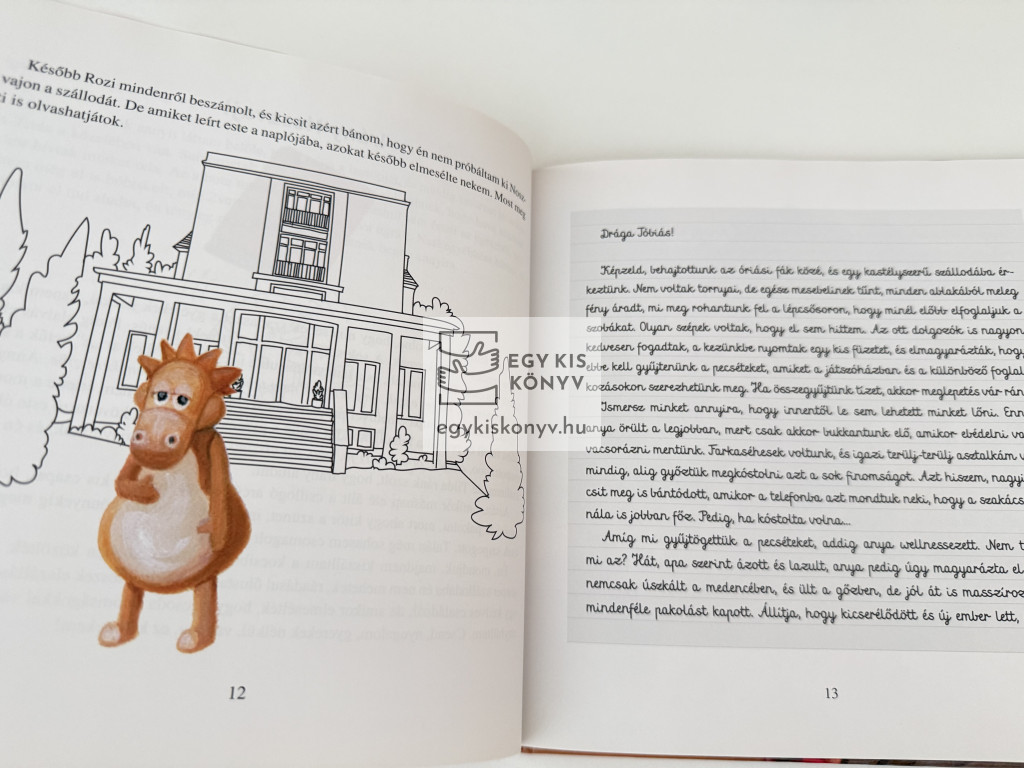 Később Rozi mindenről beszámolt, és kicsit azért bánom, hogy én nem próbáltam ki Nosz-
vajon a szállodát. De amiket leírt este a naplójába, azokat később elmesélte nekem. Most még
ti is olvashatjátok.
12
Drága Tóbiás!
Képzeld, behajtottunk az óriási fák közé, és egy kastélyszerű szállodába ér-
keztünk. Nem voltak tornyai, de egész mesebelinek tűnt, minden ablakából meleg
fény áradt, mi meg rohantunk fel a lépcsősoron, hogy minél előbb elfoglaljuk a
szobákat. Olyan szépek voltak, hogy el sem hittem. Az ott dolgozók is nagyon
kedvesen fogadtak, a kezünkbe nyomtak egy kis füzetet, és elmagyarázták, hogy
ebbe kell gyűjtenünk a pecséteket, amiket a játszóházban és a különböző foglal
kozásokon szerezhetünk meg. Ha összegyűjtünk tízet, akkor meglepetés vár rán
Ismersz minket annyira, hogy innentől le sem lehetett minket lőni. Enn
anya örült a legjobban, mert csak akkor bukkantunk elő, amikor ebédelni va
vacsorázni mentünk. Farkaséhesek voltunk, és igazi terülj-terülj asztalkám v
mindig, alig győztük megkóstolni azt a sok finomságot. Azt hiszem, nagyi
csit meg is bántódott, amikor a telefonba azt mondtuk neki, hogy a szakács
nála is jobban főz. Pedig, ha kóstolta volna...
Amíg mi gyűjtögettük a pecséteket, addig anya wellnessezett. Nem t
mi az? Hát, apa szerint ázott és lazult, anya pedig úgy magyarázta el
nemcsak úszkált a medencében, és ült a gőzben, de jól át is masszíroz
mindenféle pakolást kapott. Állítja, hogy kicserélődött és új ember lett,
13
EGY KIS
KÖNYV
egykiskonyv.hu